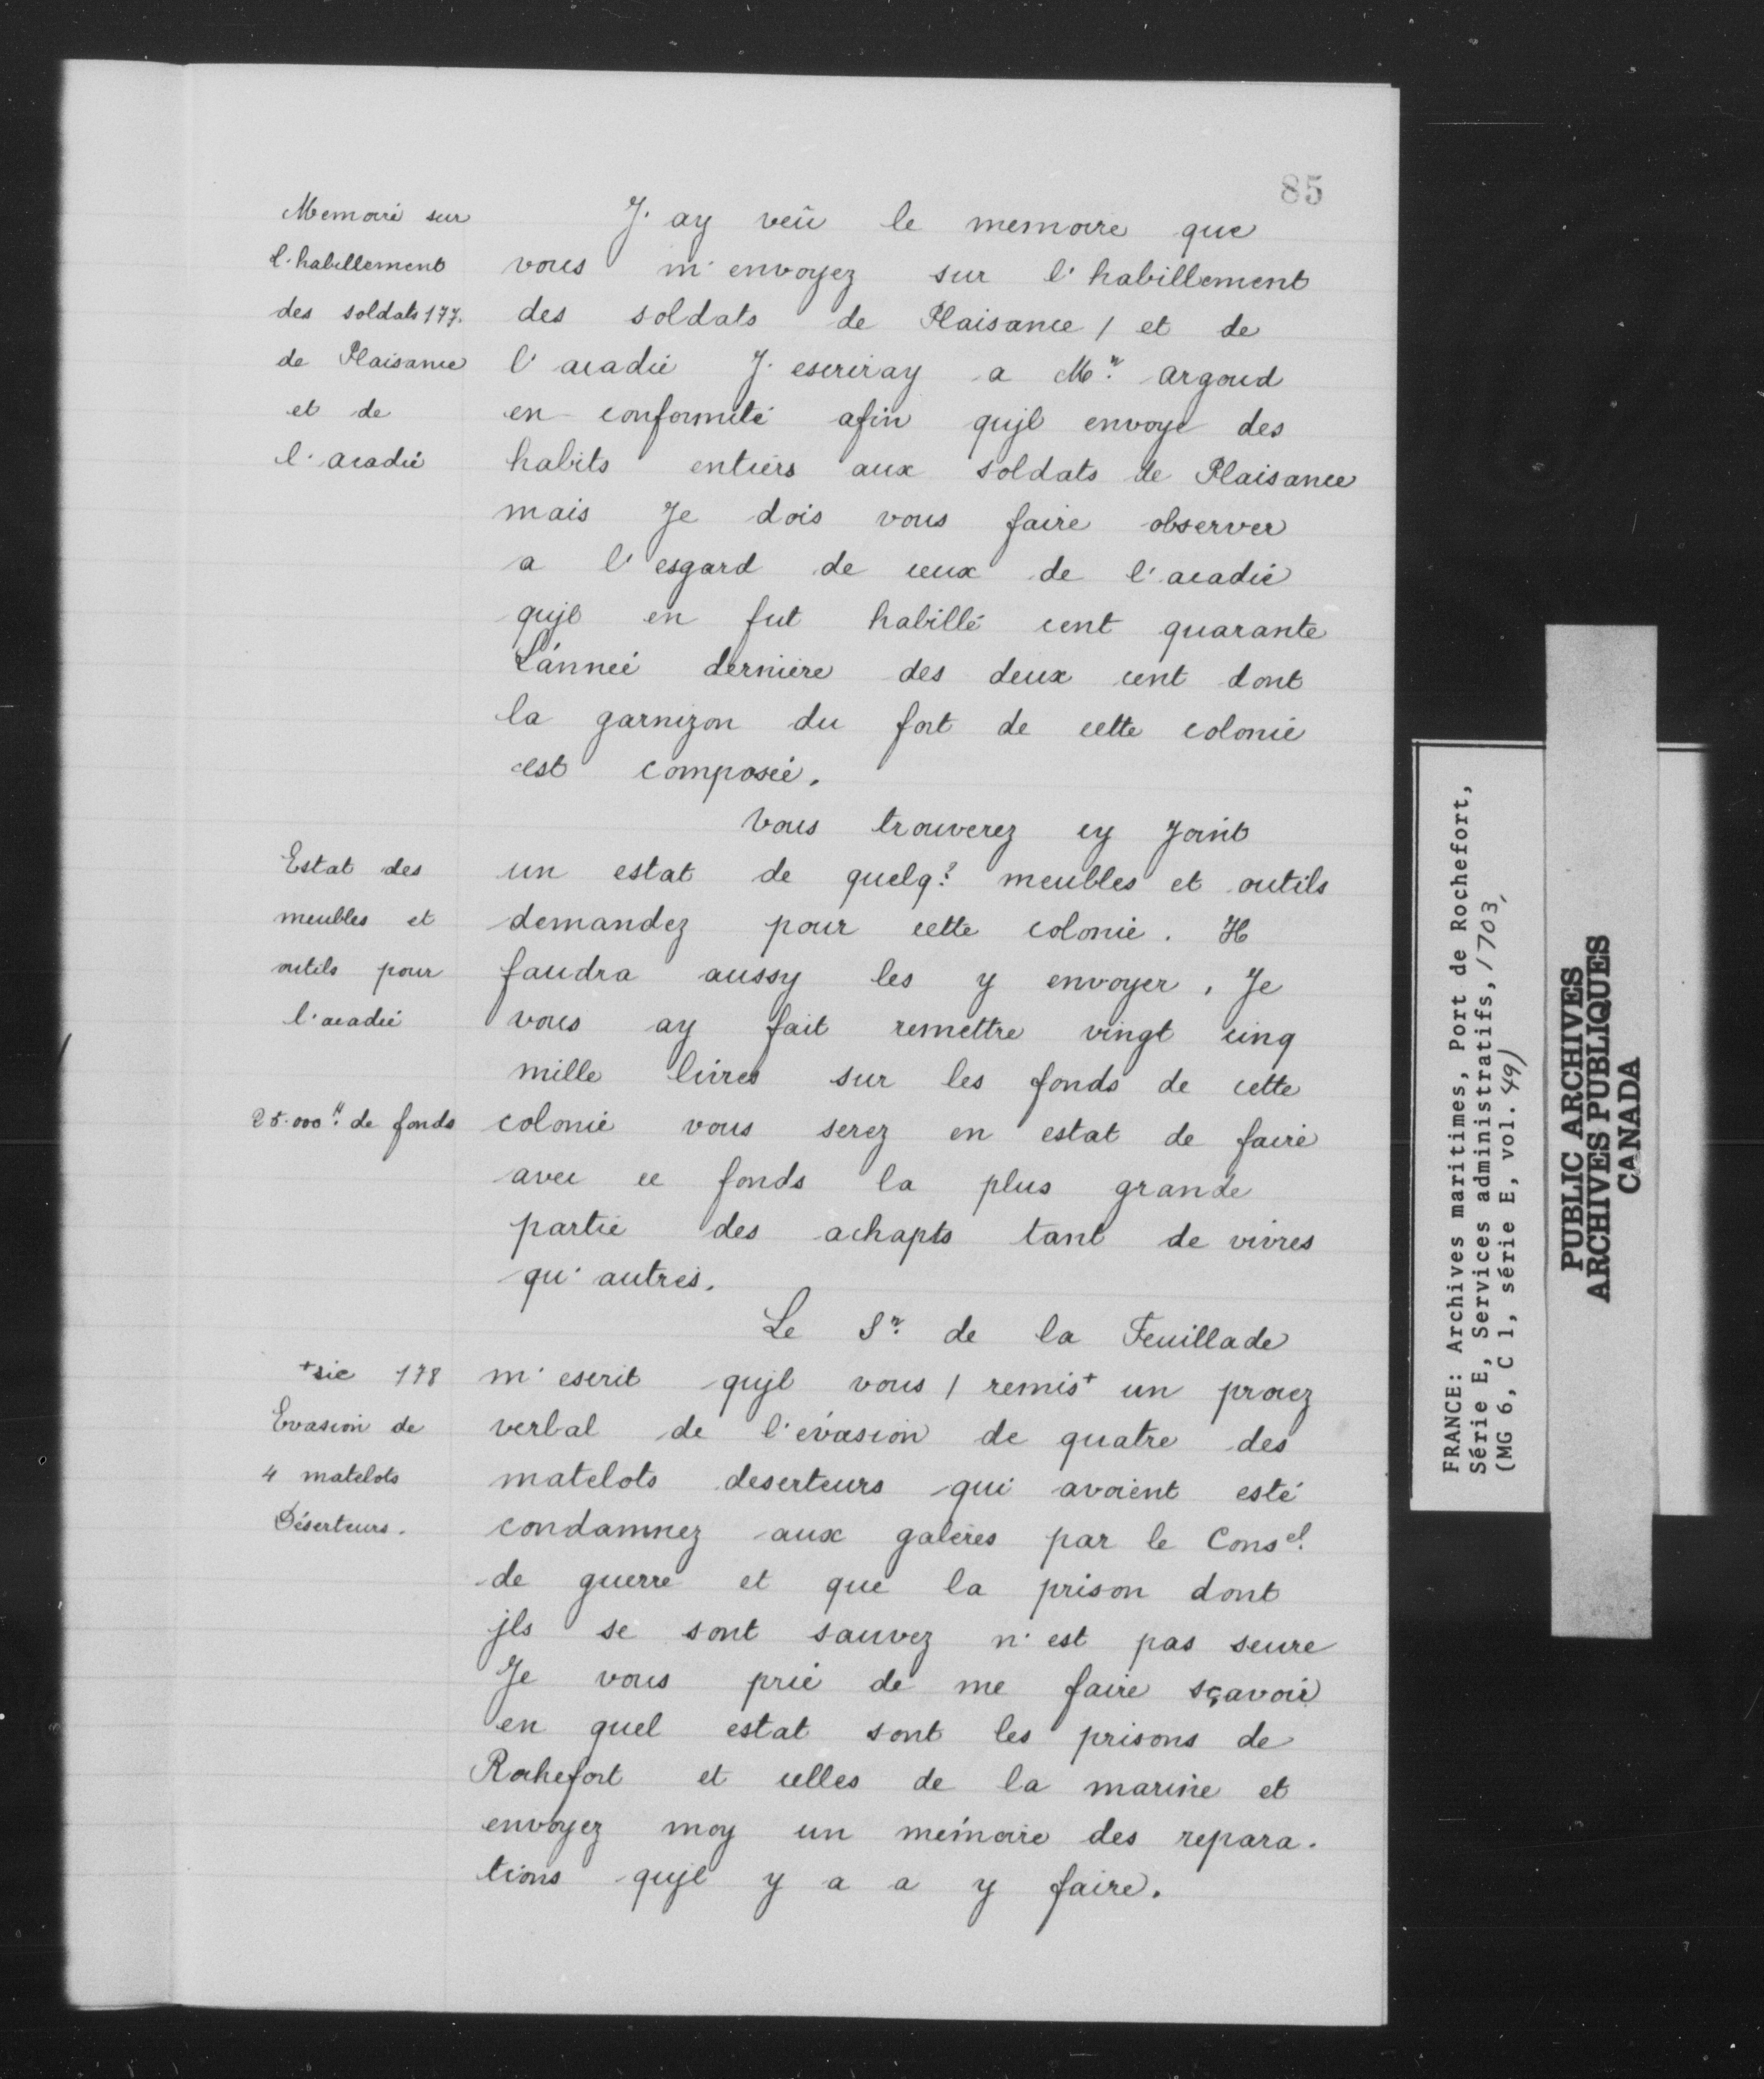 85
Memoire sur
l'habillement
des soldats 177.
de Plaisance
et de
l'acadie
J'ay veû le memoire que
vous m'envoyez sur l'habillement
des soldats de Plaisance / et de
l'acadie J'escriray a Mr. argoud
en conformité afin qujl envoye des
habits entiers aux soldats de Plaisance
mais Je dois vous faire observer
a l'esgard de ceux de l'acadie
qujl en fut habillé cent quarante
L'année derniere des deux cent dont
la garnizon du fort de cette colonie
est composée.
Vous trouverez cy Joint
Estat des
meubles et
outils pour
l'acadie
un estat de quelq.s meubles et outils
demandez pour cette colonie. Il
faudra aussy les y envoyer. Je
vous ay fait remettre vingt cinq
mille livres sur les fonds de cette
25.000ll. de fonds
colonie vous serez en estat de faire
avec ce fonds la plus grande
partie des achapts tant de vivres
qu'autres.
Le Sr. de la Feuillade
+sic 178
Evasion de
4 matelots
Déserteurs.
m'escrit qujl vous / remis+ un procez
verbal de l'évasion de quatre des
matelots deserteurs qui avoient esté
condamnez aux galeres par le Consel.
de guerre et que la prison dont
jls se sont sauvez n'est pas seure
Je vous prie de me faire sçavoir
en quel estat sont les prisons de
Rochefort et celles de la marine et
envoyez moy un mémoire des repara-
tions qujl y a a y faire.
FRANCE: Archives maritimes, Port de Rochefort,
Série E, Services administratifs, 1703,
(MG 6, C 1, série E, vol. 49)
PUBLIC ARCHIVES
ARCHIVES PUBLIQUES
CANADA